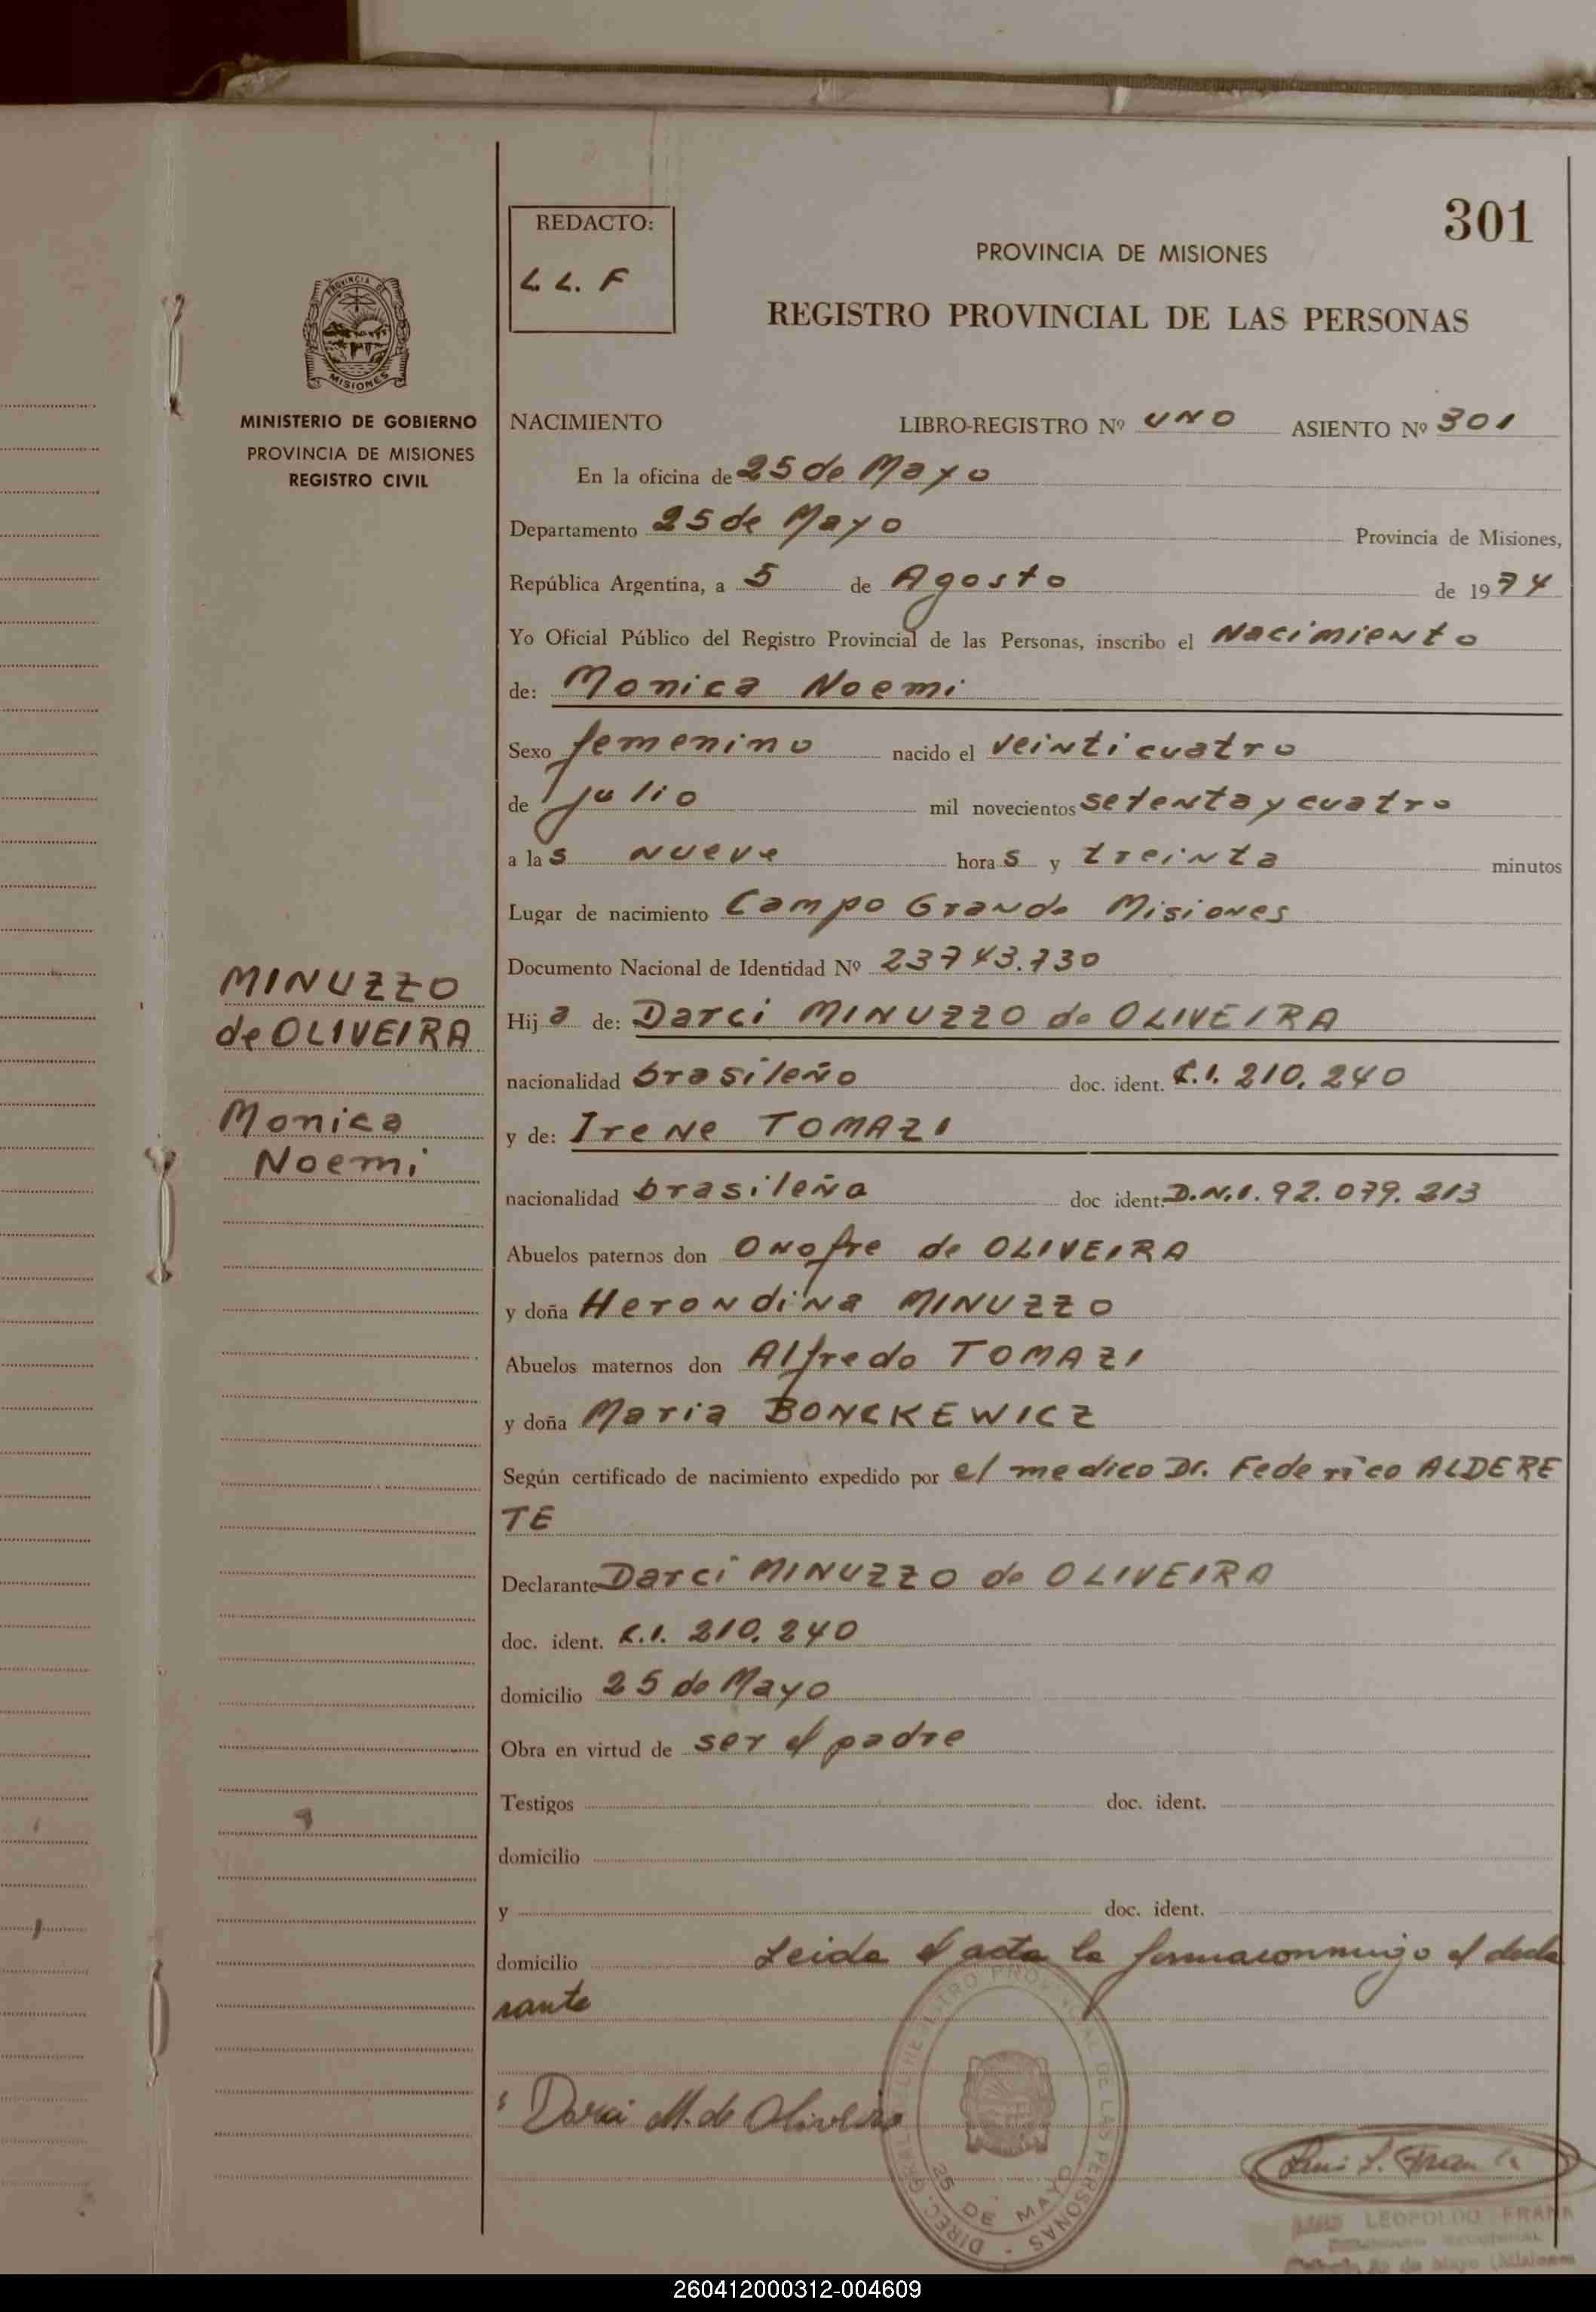 301
REDACTO:
L. L. F
PROVINCIA DE MISIONES
REGISTRO PROVINCIAL DE LAS PERSONAS
PROVINCIA DE
MISIONES
MINISTERIO DE GOBIERNO
PROVINCIA DE MISIONES
REGISTRO CIVIL
NACIMIENTO LIBRO-REGISTRO Nº UNO ASIENTO Nº 301
En la oficina de 25 de Mayo
Departamento 25 de Mayo Provincia de Misiones,
República Argentina, a 5 de Agosto de 1974
Yo Oficial Público del Registro Provincial de las Personas, inscribo el Nacimiento
de: Monica Noemi
Sexo femenino nacido el veinticuatro
de julio mil novecientos setenta y cuatro
a las nueve horas y treinta minutos
Lugar de nacimiento Campo Grande Misiones
Documento Nacional de Identidad Nº 23743.730
Hija de: Darci MINUZZO de OLIVEIRA
nacionalidad brasileño doc. ident. C.I. 210.240
y de: Irene TOMAZI
nacionalidad brasileña doc ident. D.N.I. 92.079.213
Abuelos paternos don Onofre de OLIVEIRA
y doña Herondina MINUZZO
Abuelos maternos don Alfredo TOMAZI
y doña Maria BONCKEWICZ
Según certificado de nacimiento expedido por el medico Dr. Federico ALDERE
TE
Declarante Darci MINUZZO de OLIVEIRA
doc. ident. C.I. 210.240
domicilio 25 de Mayo
Obra en virtud de ser el padre
Testigos doc. ident.
domicilio
y doc. ident.
domicilio Leida el acta la firma conmigo el decla
rante
Darci M. de Oliveira
MINUZZO
de OLIVEIRA
Monica
Noemi
25 DE MAYO
LEOPOLDO
260412000312-004609